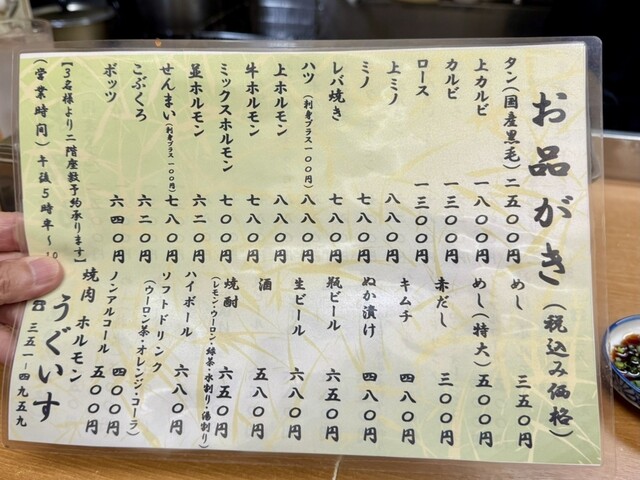 お品がき(税込み価格)
タン(国産黒毛)二五〇〇円
上カルビ 一八〇〇円
カルビ 一三〇〇円
ロース 一三〇〇円
上ミノ 八八〇円
ミノ 七八〇円
レバ焼き 七八〇円
ハツ(刺身プラス一〇〇円)八八〇円
上ホルモン 八八〇円
牛ホルモン 七八〇円
ミックスホルモン 七〇〇円
並ホルモン 六二〇円
せんまい(刺身プラス一〇〇円)七八〇円
こぶくろ 六二〇円
ポッツ 六四〇円
【3名様より二階座敷予約承ります】
(営業時間)午後5時半〜10
めし 三五〇円
めし(特大)五〇〇円
赤だし 三〇〇円
キムチ 四八〇円
ぬか漬け 四八〇円
瓶ビール 六五〇円
生ビール 六八〇円
酒 五八〇円
焼酎 六五〇円
(レモン・ウーロン・緑茶・水割り・湯割り)
ハイボール 六八〇円
ソフトドリンク
(ウーロン茶・オレンジ・コーラ)四〇〇円
ノンアルコール 五〇〇円
焼肉 ホルモン うぐいす
三五一-四九五九